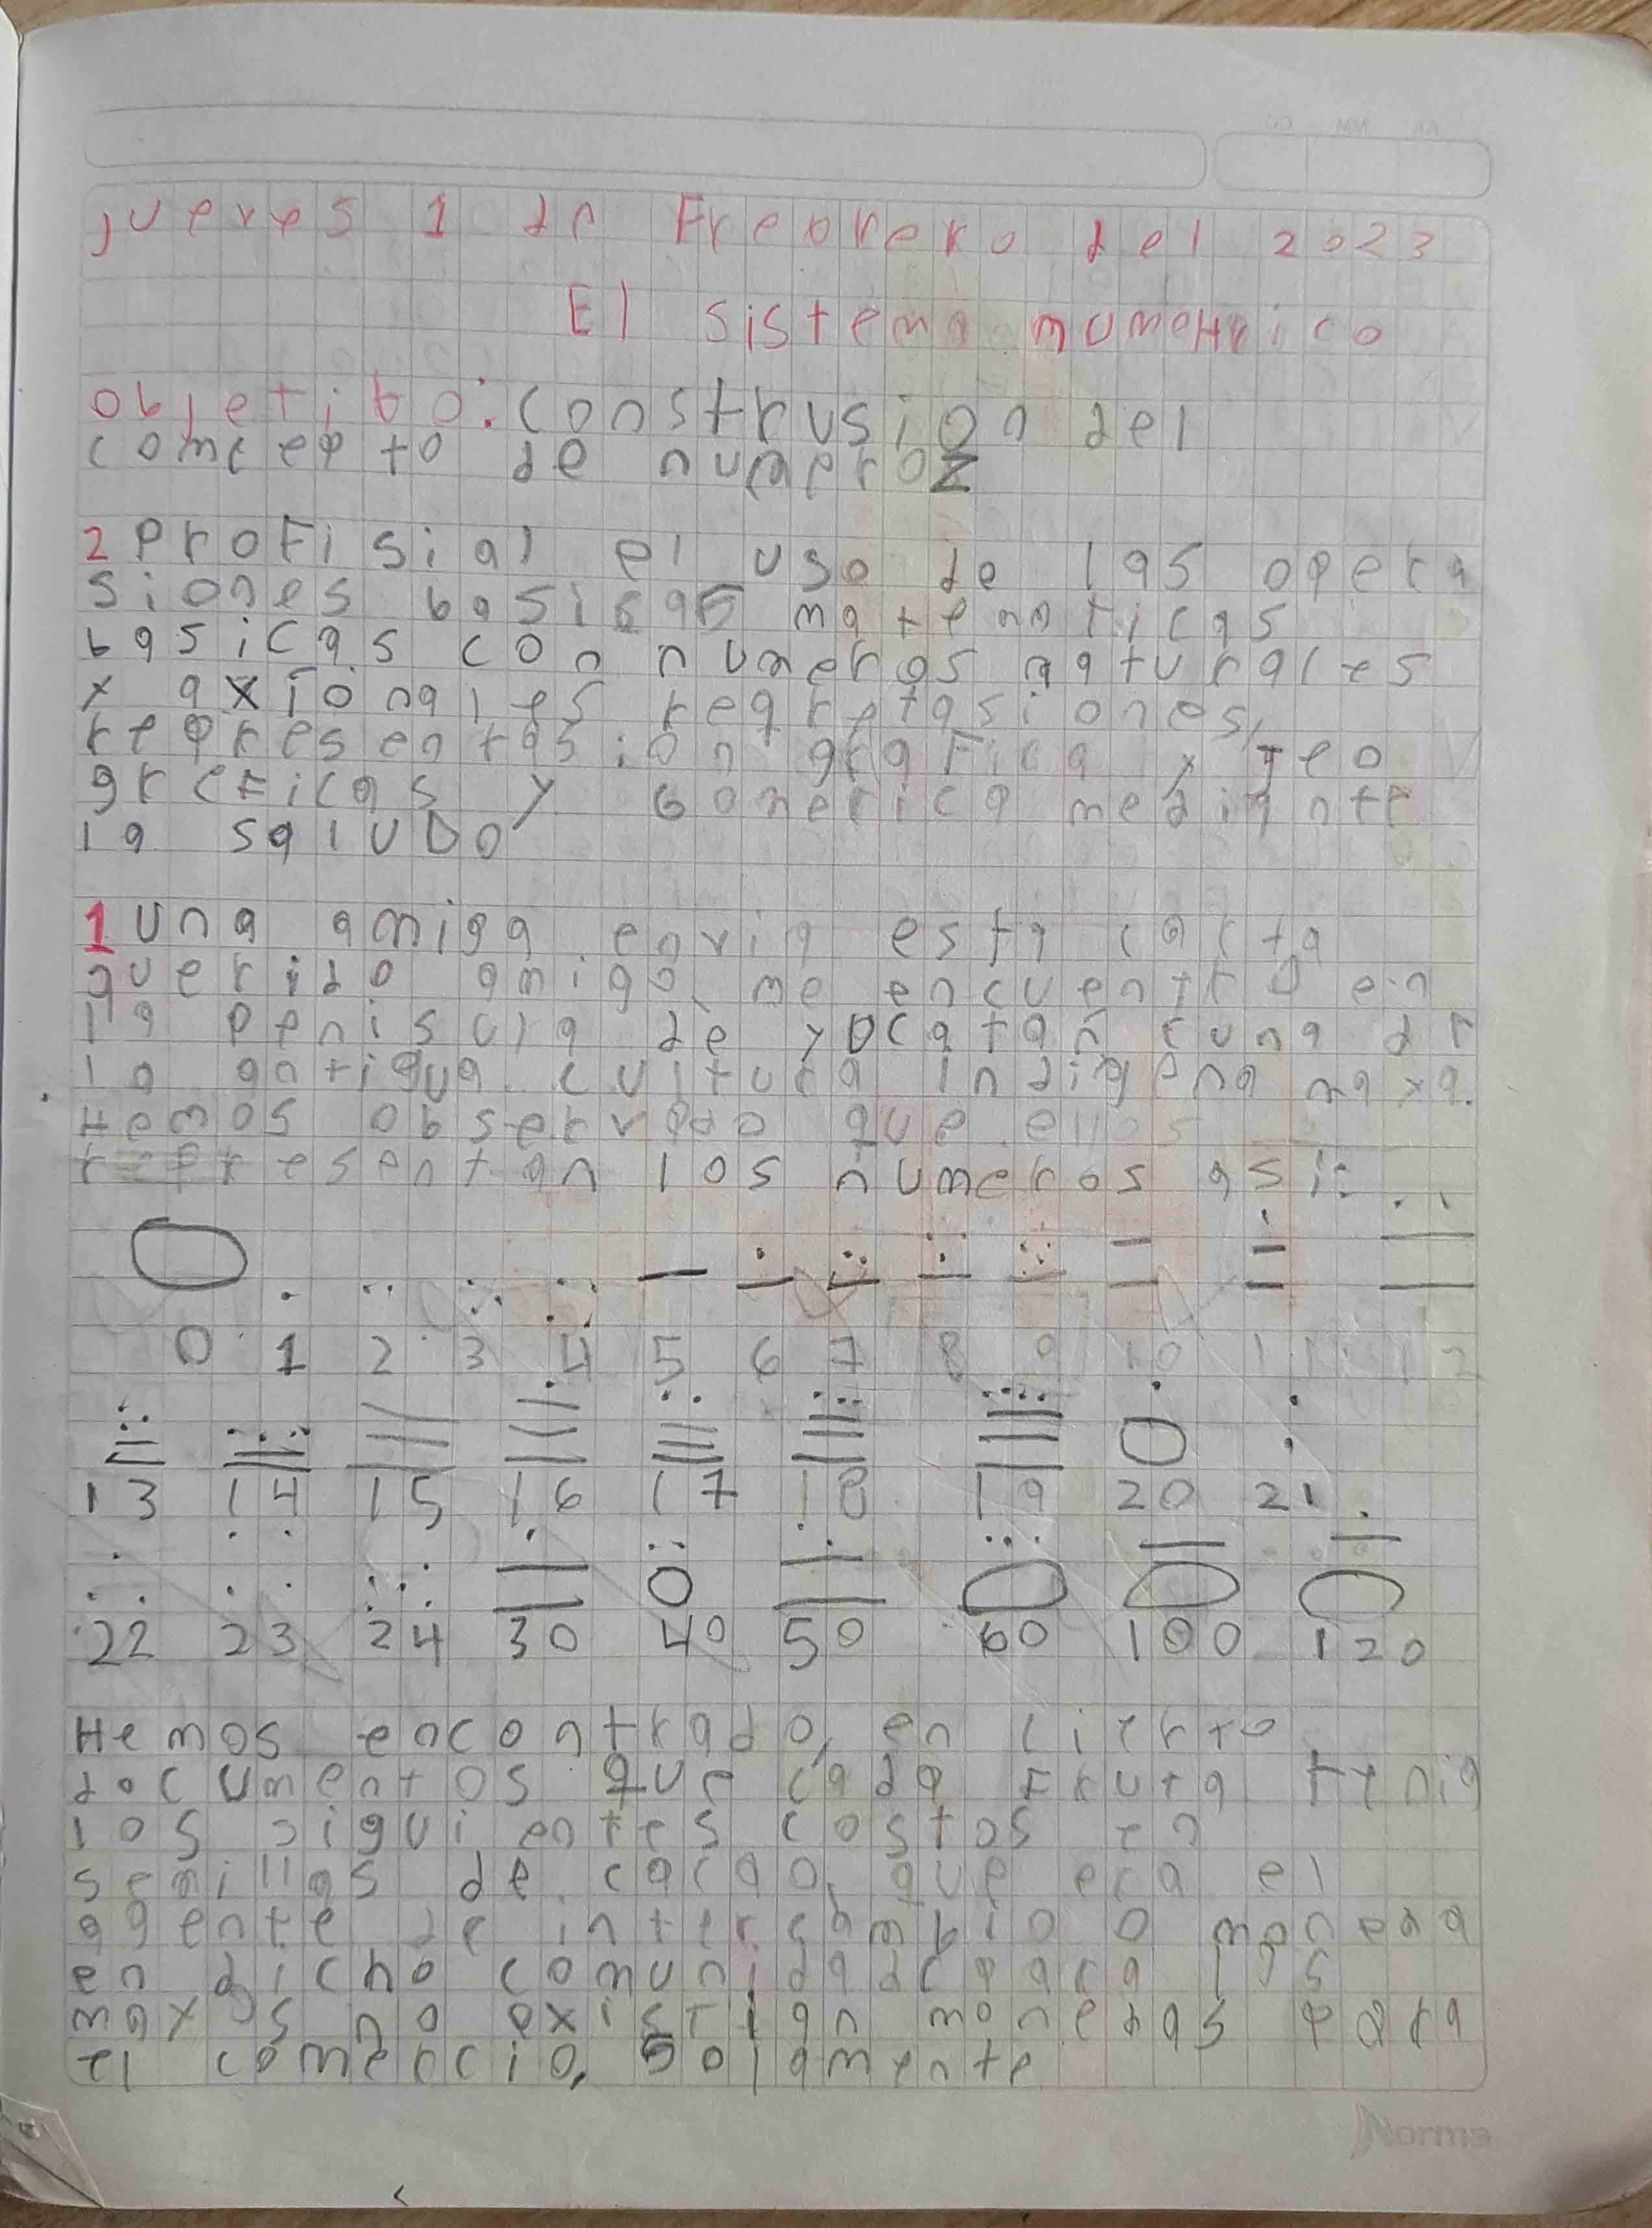 jueves 1 de Freorero del 2023
El sistema numeHrico
objetibo: construsion del
concepto de numeroz
2 Profisial el uso de las opera
siones basicas matematicas
basicas con numeros naturales
y axionales regretasiones,
representasion grafica y Teo
grcficas y bomerica mediante
la saluDo
1 una amiga envia esta carta
querido amigo, me encuentro en
la penisula de yocatan cuna de
la antigua cultura indigena maya.
Hemos observado que ellos
representan los numeros asi:
0 1 2 3 4 5 6 7 8 9 10 11 12
13 14 15 16 17 18 19 20 21
22 23 24 30 40 50 60 100 120
Hemos encontrado, en cierto
documentos que cada fruta tenia
los siguientes costos en
semillas de cacao, que era el
agente de intercambio o moneda
en dicho comunidad para los
mayos no existian monedas para
el comercio, solamente
Norma